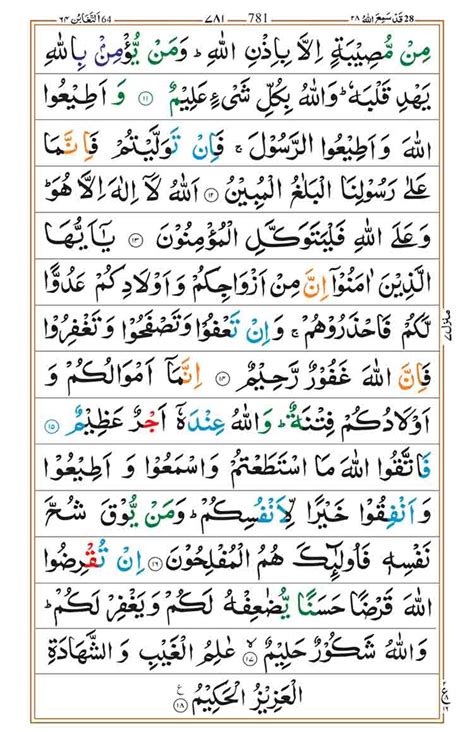 28 قَدْ سَمِعَ اللّٰهُ ٢٨ 781 ٧٨١ اَلتَّغَابُن 64 ٦٤
مِنْ مُّصِيْبَةٍ اِلَّا بِاِذْنِ اللّٰهِ ؕ وَمَنْ يُّؤْمِنْۢ بِاللّٰهِ
يَهْدِ قَلْبَهٗ ؕ وَاللّٰهُ بِكُلِّ شَىْءٍ عَلِيْمٌ ﴿۱۱﴾ وَ اَطِيْعُوا
اللّٰهَ وَ اَطِيْعُوا الرَّسُوْلَ ۚ فَاِنْ تَوَلَّيْتُمْ فَاِنَّمَا
عَلٰى رَسُوْلِنَا الْبَلٰغُ الْمُبِيْنُ ﴿۱۲﴾ اَللّٰهُ لَاۤ اِلٰهَ اِلَّا هُوَ ؕ
وَ عَلَى اللّٰهِ فَلْيَتَوَكَّلِ الْمُؤْمِنُوْنَ ﴿۱۳﴾ يٰۤاَيُّهَا
الَّذِيْنَ اٰمَنُوْۤا اِنَّ مِنْ اَزْوَاجِكُمْ وَ اَوْلَادِكُمْ عَدُوًّا
لَّكُمْ فَاحْذَرُوْهُمْ ۚ وَ اِنْ تَعْفُوْا وَتَصْفَحُوْا وَ تَغْفِرُوْا
فَاِنَّ اللّٰهَ غَفُوْرٌ رَّحِيْمٌ ﴿۱۴﴾ اِنَّمَاۤ اَمْوَالُكُمْ وَ
اَوْلَادُكُمْ فِتْنَةٌ ؕ وَاللّٰهُ عِنْدَهٗۤ اَجْرٌ عَظِيْمٌ ﴿۱۵﴾
فَاتَّقُوا اللّٰهَ مَا اسْتَطَعْتُمْ وَاسْمَعُوْا وَ اَطِيْعُوْا
وَ اَنْفِقُوْا خَيْرًا لِّاَنْفُسِكُمْ ؕ وَمَنْ يُّوْقَ شُحَّ
نَفْسِهٖ فَاُولٰٓئِكَ هُمُ الْمُفْلِحُوْنَ ﴿۱۶﴾ اِنْ تُقْرِضُوا
اللّٰهَ قَرْضًا حَسَنًا يُّضٰعِفْهُ لَكُمْ وَ يَغْفِرْ لَكُمْ ؕ
وَاللّٰهُ شَكُوْرٌ حَلِيْمٌ ۙ﴿۱۷﴾ عٰلِمُ الْغَيْبِ وَ الشَّهَادَةِ
الْعَزِيْزُ الْحَكِيْمُ ﴿۱۸﴾ ع